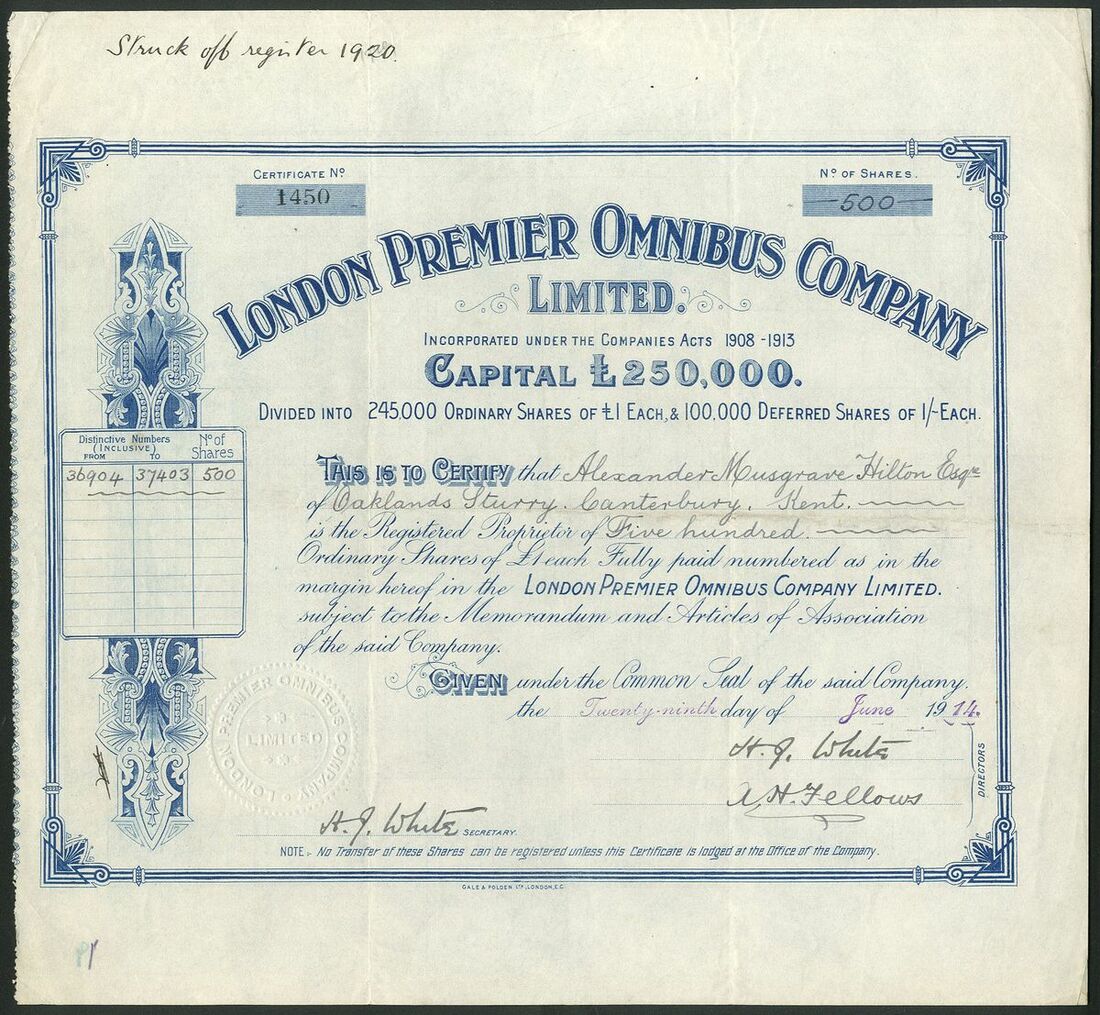 Struck off register 1920.
CERTIFICATE Nº
1450
Nº OF SHARES.
500
LONDON PREMIER OMNIBUS COMPANY
LIMITED.
INCORPORATED UNDER THE COMPANIES ACTS 1908-1913
CAPITAL £250,000.
DIVIDED INTO 245,000 ORDINARY SHARES OF £1 EACH, & 100,000 DEFERRED SHARES OF 1/- EACH.
Distinctive Numbers
(INCLUSIVE)
FROM TO
Nº of
Shares
36904 37403 500
THIS IS TO CERTIFY that Alexander Musgrave Hilton Esqre
of Oaklands Sturry. Canterbury. Kent.
is the Registered Proprietor of Five hundred.
Ordinary Shares of £1 each Fully paid numbered as in the
margin hereof in the LONDON PREMIER OMNIBUS COMPANY LIMITED.
subject to the Memorandum and Articles of Association
of the said Company.
GIVEN under the Common Seal of the said Company.
the Twenty-ninth day of June 1914.
LONDON PREMIER OMNIBUS COMPANY
LIMITED
H. J. White
A H. Fellows
DIRECTORS
H. J. White SECRETARY.
NOTE:- No Transfer of these Shares can be registered unless this Certificate is lodged at the Office of the Company.
GALE & POLDEN LTD., LONDON, E.C.